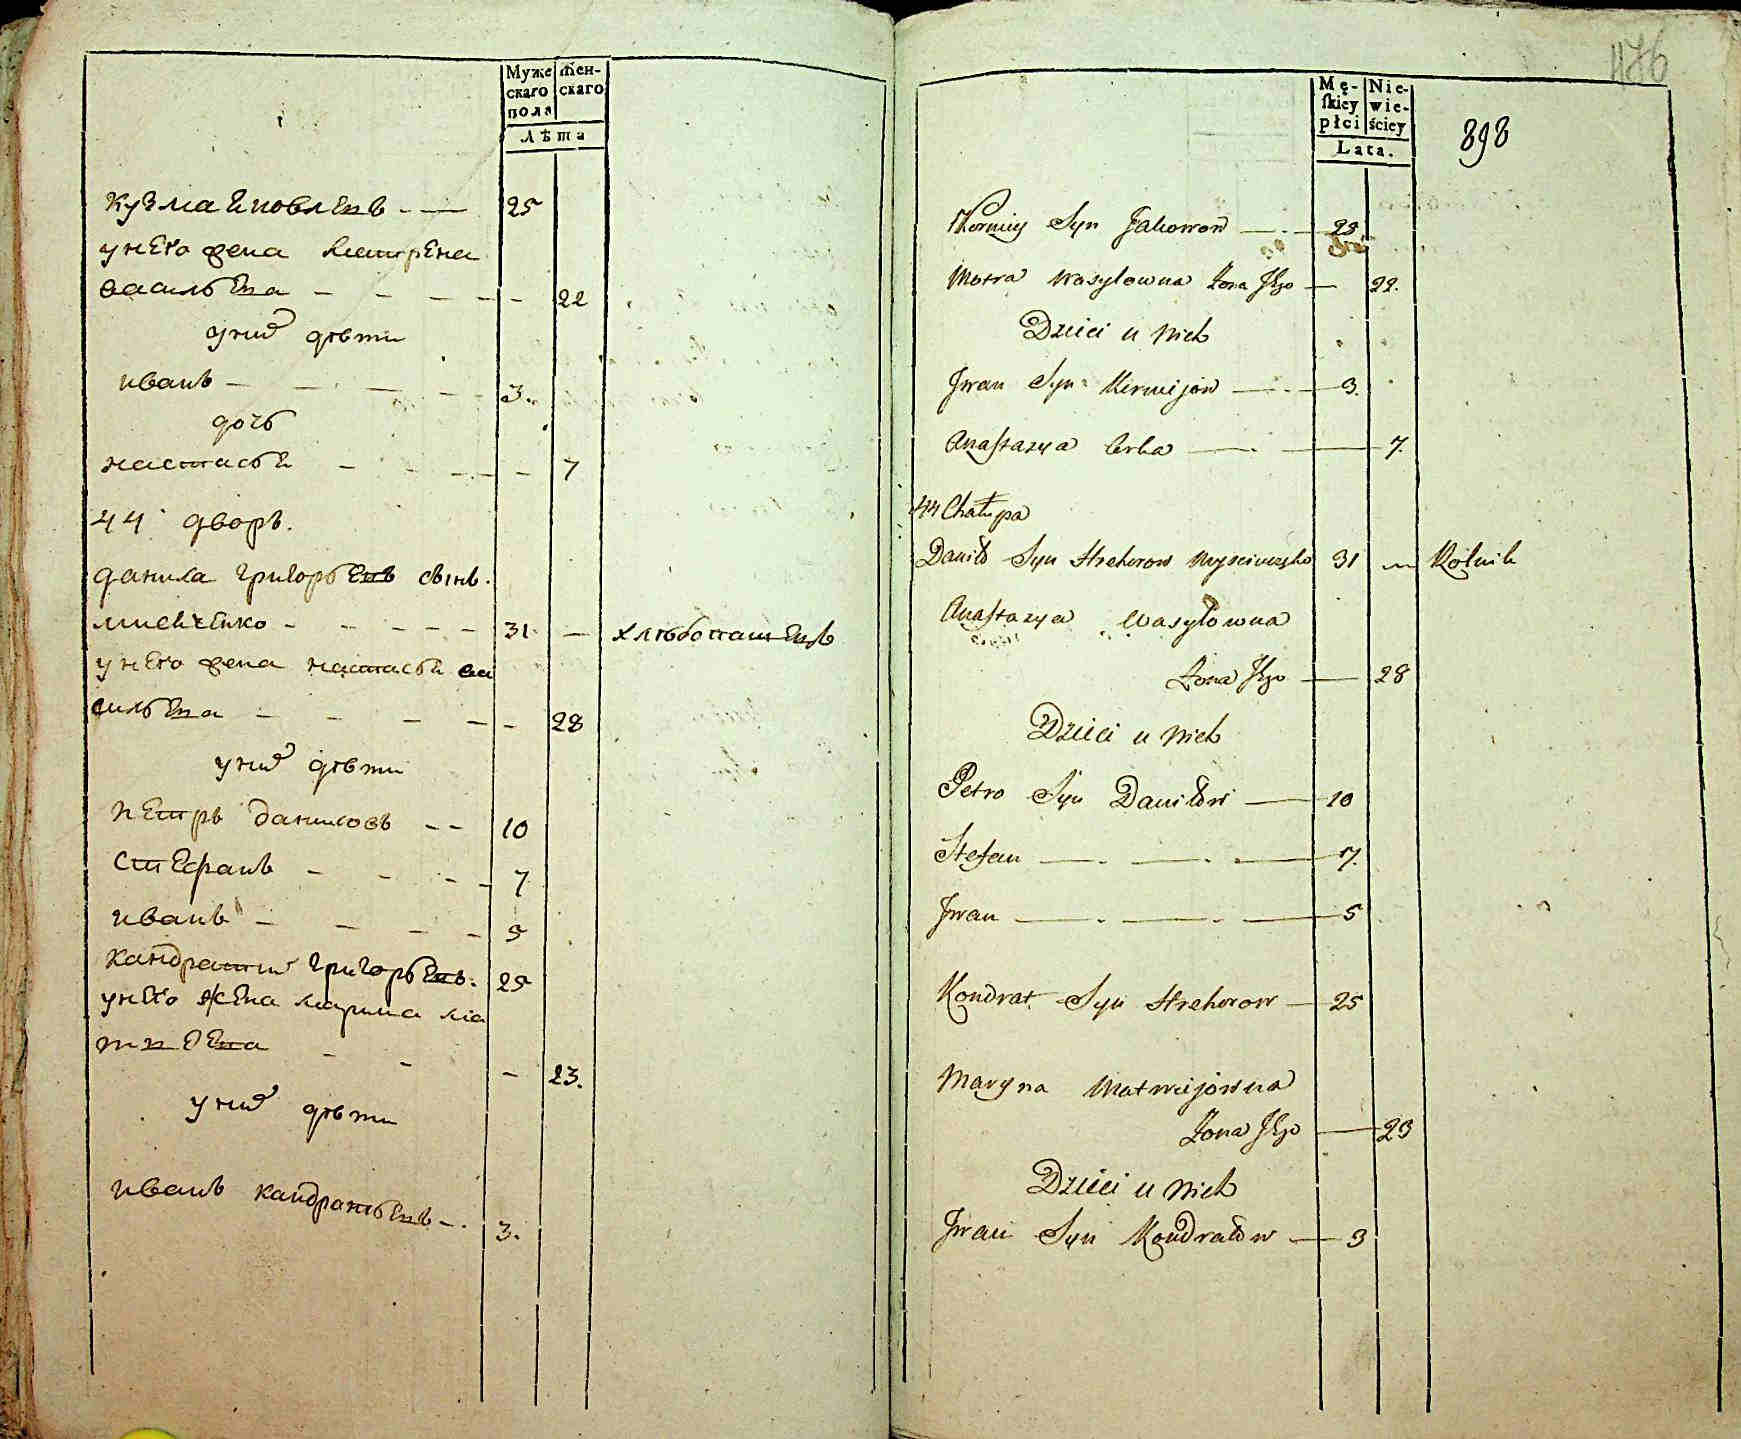 Муже
скаго
пола
жен-
скаго
Лѣта
кузма Яковлевъ - — 25
унего жена матрена
васильева - - - - - 22
уних дѣти
иванъ - - - - 3.
дочь
настасья - - - - - 7
44 дворъ.
данила григорьевъ
31. — хлѣбопашецъ
унего жена настасья ва
сильева - - - - - 28
уних дѣти
петръ даниловъ - - 10
стефанъ - - - - 7
иванъ - - - - 5
кандратий григорьевъ. 25
унего жена марина ма
твѣева - - - 23.
уних дѣти
иванъ кандратьевъ -. 3.
476
Mę-
skiey
płci
Nie-
wie-
ściey
Lata.
898
Syn Jakowow — 25
Motra Wasylowna Żona Jego — 22.
Dzieci u Nich
Jwan Syn Kirmijow — 3.
Anastazya Corka — — 7.
44 Chałupa
Daniło Syn Hrehorow 31 — Rolnik
Anastazya Wasylowna
Żona Jego — 28
Dzieci u Nich
Petro Syn Daniłow — 10
Stefan — — — 7.
Jwan — — — 5
Kondrat Syn Hrehorow — 25
Maryna Matwiejowna
Żona Jego — 23
Dzieci u Nich
Jwan Syn Kondratow — 3